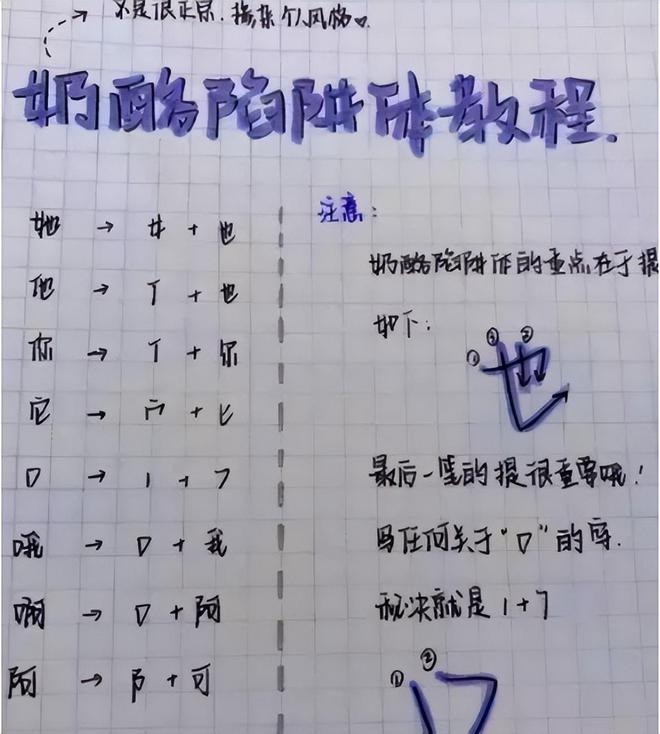 不是很正宗，掺杂个人风格
奶酪陷阱体教程.
她 → 女 + 也
他 → 亻 + 也
你 → 亻 + 尔
它 → 宀 + 匕
口 → 1 + 7
哦 → 口 + 我
啊 → 口 + 阿
阿 → 阝 + 可
注意：
奶酪陷阱体的重点在于提
如下：
① ③ ②
也
最后一笔的提很重要哦！
写任何关于“口”的字.
秘诀就是 1+7
① ②